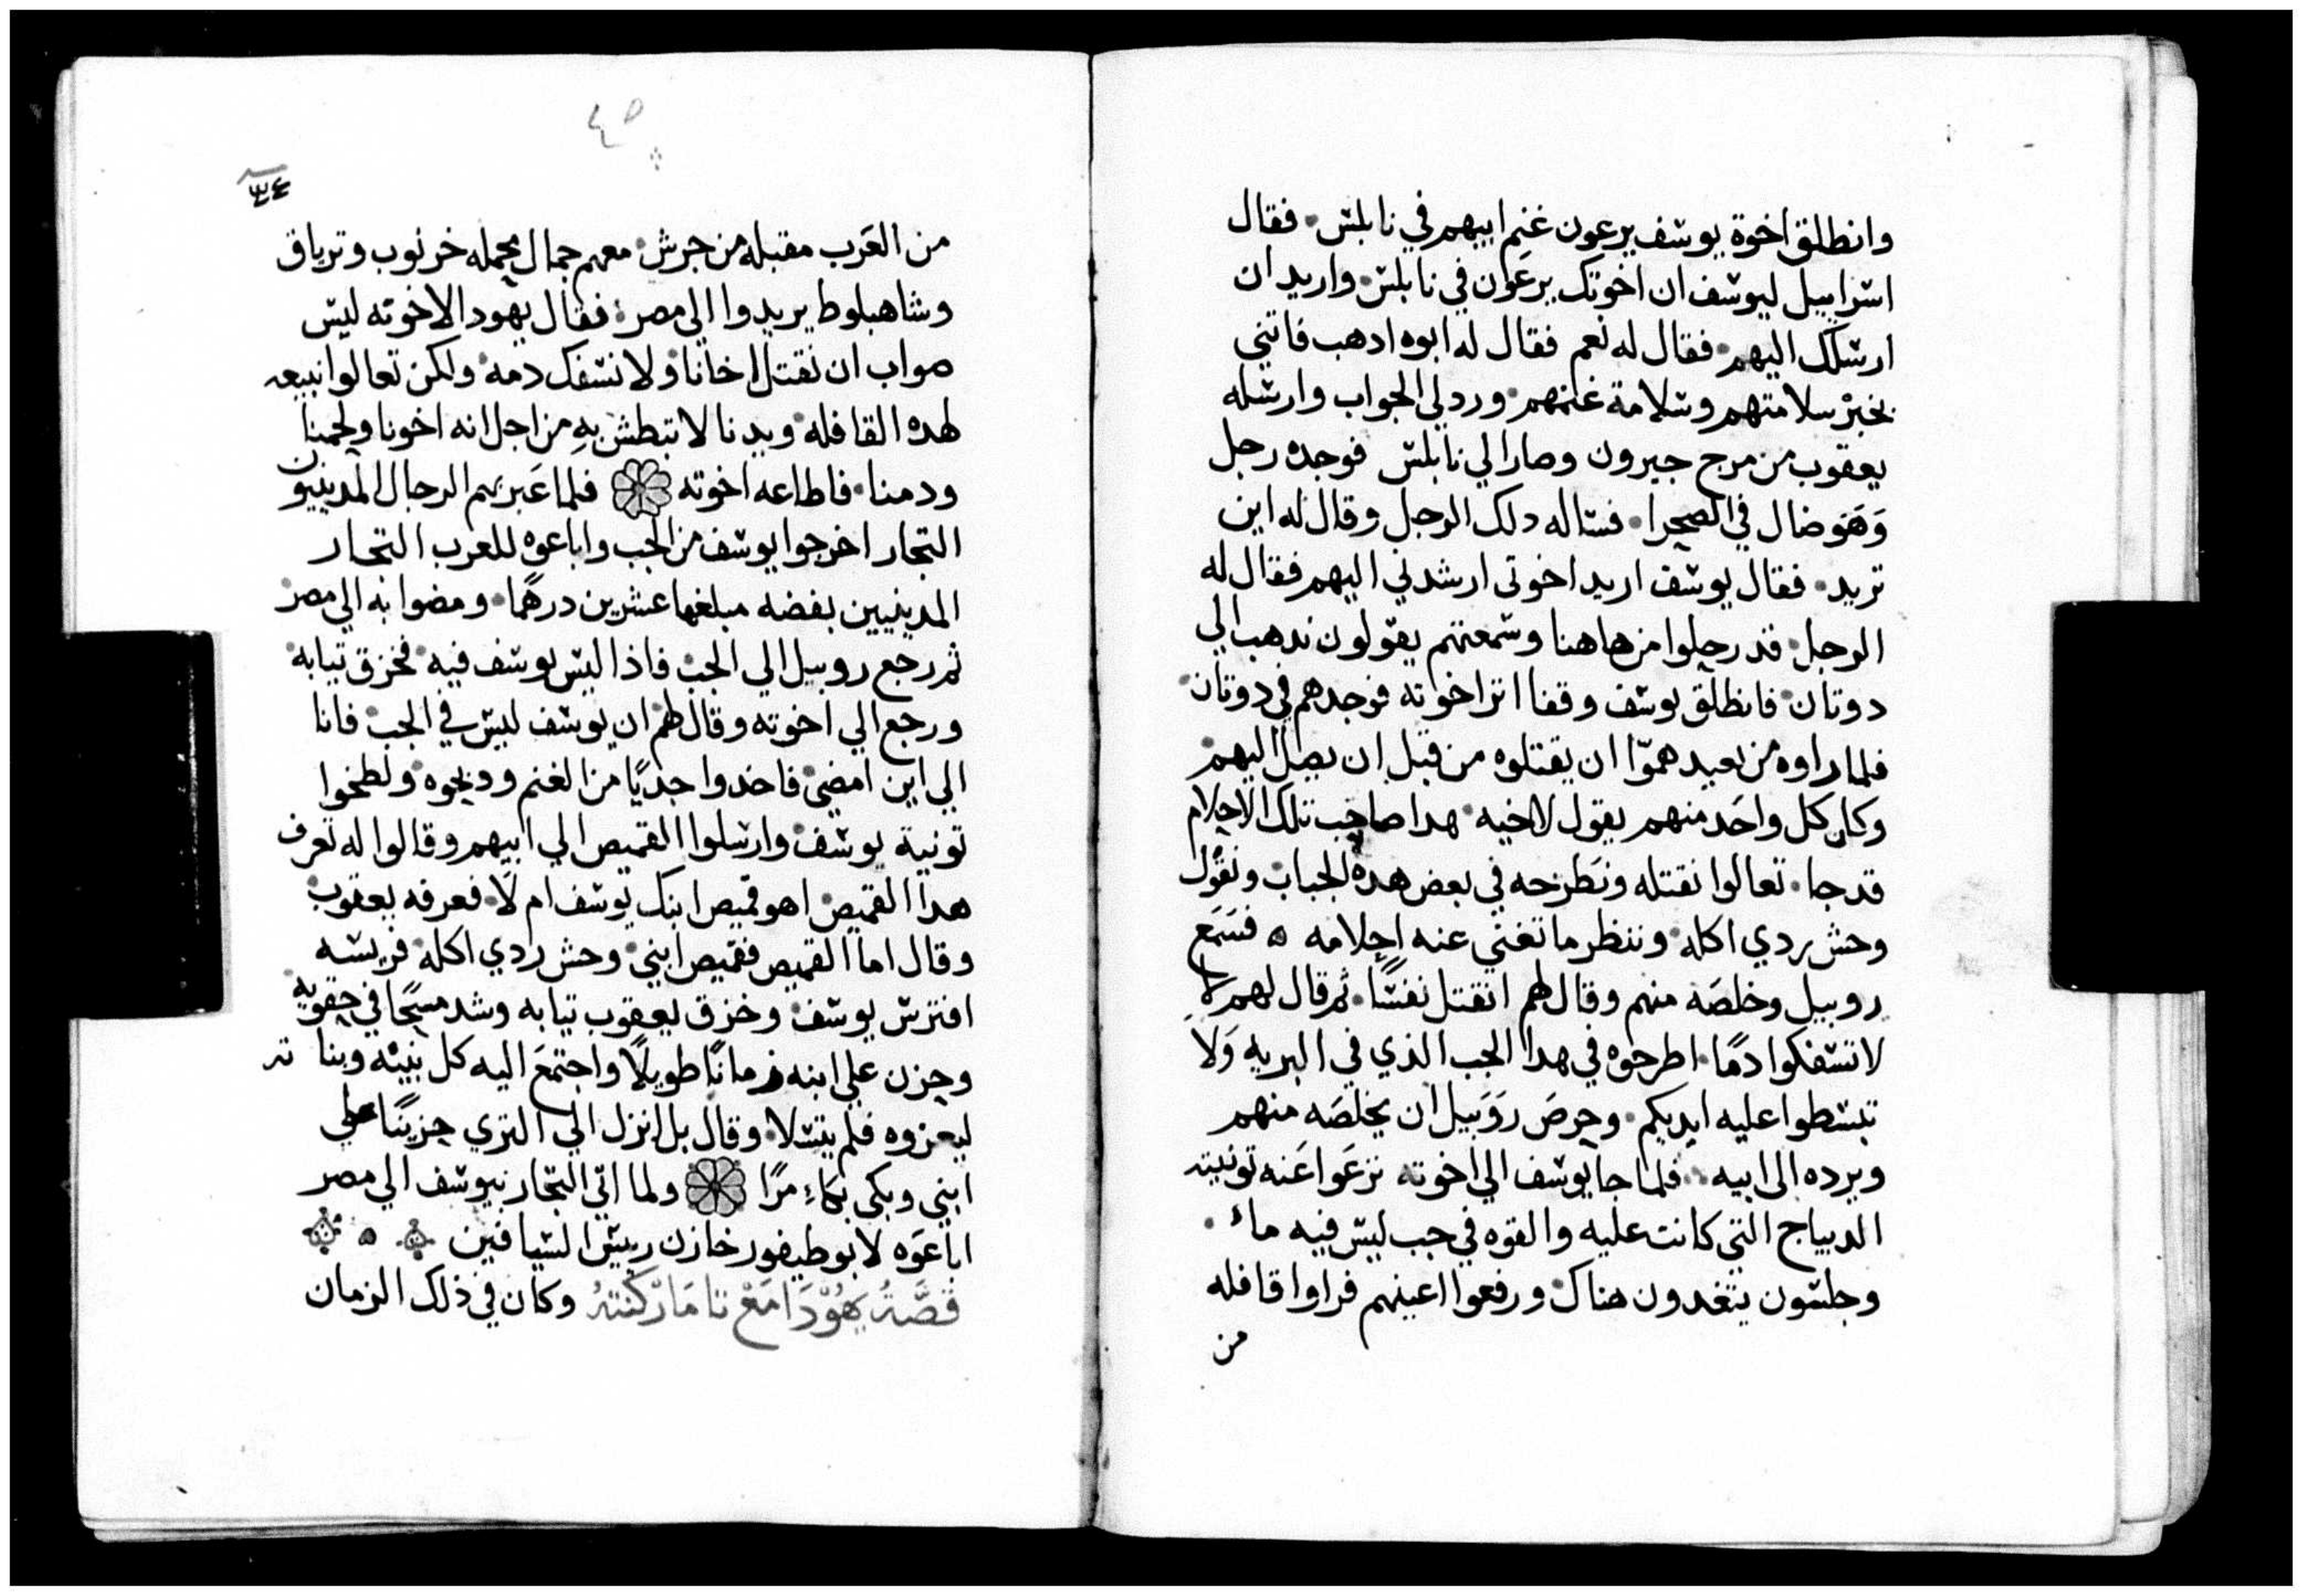 وانطلق اخوة يوسف يرعون غنم ابيهم في نابلس فقال
اسراييل ليوسف ان اخوتك يرعون في نابلس واريد ان
ارسلك اليهم فقال له نعم فقال له ابوه ادهب فاتني
بخبر سلامتهم وسلامة غنمهم ورد لي الجواب وارسله
يعقوب من مرج جبرون وصار الي نابلس فوجده رجل
وهو ضال في الصحرا فساله دلك الرجل وقال له اين
تريد فقال يوسف اريد اخوتي ارشدني اليهم فقال له
الرجل قد رحلوا من هاهنا وسمعتهم يقولون ندهب الي
دوتان فانطلق يوسف وقفا اتر اخوته فوجدهم في دوتان
فلما راوه من بعيد همّوا ان يقتلوه من قبل ان يصل اليهم
وكان كل واحد منهم يقول لاخيه هدا صاحب تلك الاحلام
قد جا تعالوا نقتله ونطرحه في بعض هده الجباب ونقول
وحش ردي اكله وننظر ما تغني عنه احلامه ه فسمع
روبيل وخلصه منهم وقال لهم انقتل نفسًا ثم قال لهم
لا تسفكوا دمًا اطرحوه في هدا الجب الذي في البريه ولا
تبسطوا عليه ايديكم وحرص روبيل ان يخلصه منهم
ويرده الى ابيه فلما جا يوسف الي اخوته نزعوا عنه تونيته
الديباج التي كانت عليه والقوه في جب ليس فيه ماء
وجلسون يتغدون هناك ورفعوا اعينهم فراوا قافله
من
٣٤
من العرب مقبله من جرش معهم جمال محمله خرنوب وترياق
وشاهبلوط يريدوا الي مصر فقال يهودا لاخوته ليس
صواب ان نقتل اخانا ولا نسفك دمه ولكن تعالوا نبيعه
لهده القافله ويدنا لا تبطش به من اجل انه اخونا ولحمنا
ودمنا فاطاعه اخوته فلما عبر بهم الرجال المدينيون
التجار اخرجوا يوسف من الجب واباعوه للعرب التجار
المدينيين بفضه مبلغها عشرين درهمًا ومضوا به الي مصر
ثم رجع روبيل الي الجب فاذا ليس يوسف فيه فخزق تيابه
ورجع الي اخوته وقال لهم ان يوسف ليس في الجب فانا
الي اين امضي فاخدوا جديًا من الغنم ودبحوه ولطخوا
تونية يوسف وارسلوا القميص الي ابيهم وقالوا له تعرف
هدا القميص اهو قميص ابنك يوسف ام لا فعرفه يعقوب
وقال اما القميص فقميص ابني وحش ردي اكله فريسه
افترس يوسف وخزق يعقوب تيابه وشد مسحًا في حقويه
وحزن علي ابنه زمانًا طويلًا واجتمع اليه كل بنيه وبناته
ليعزوه فلم يتسلا وقال بل انزل الي الثري حزينًا علي
ابني وبكى بكاءً مرًا ولما اتي التجار بيوسف الي مصر
اباعوه لابوطيفور خازن ريس السيافين ه
قصّة يهودا مع تامار كنته وكان في ذلك الزمان